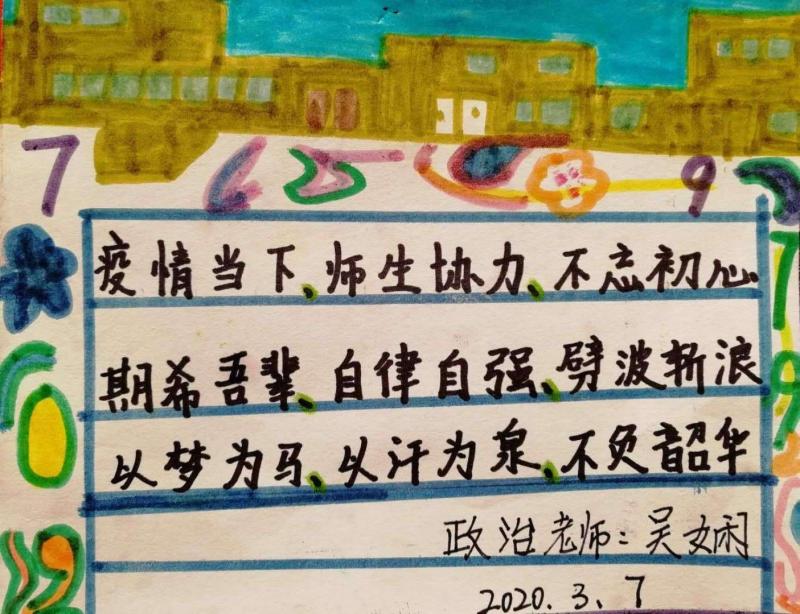 疫情当下、师生协力、不忘初心
期希吾辈、自律自强、劈波斩浪
以梦为马、以汗为泉、不负韶华
政治老师：吴娴
2020.3、7